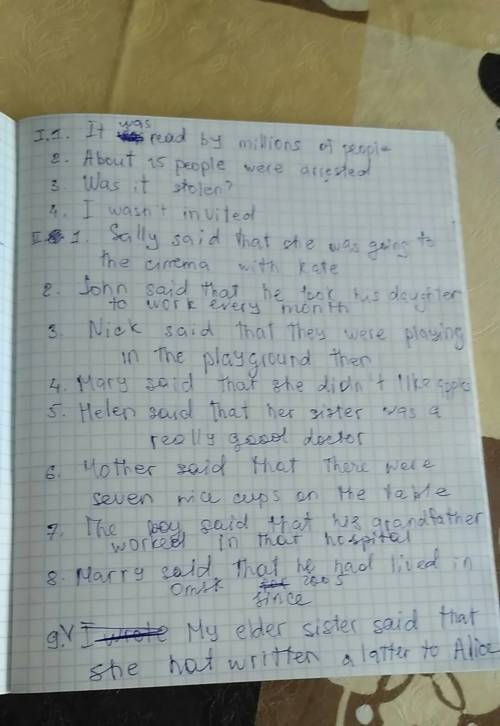 I.1. It was read by millions of people
2. About 15 people were arrested
3. Was it stolen?
4. I wasn't invited
II 1. Sally said that she was going to
the cinema with Kate
2. John said that he took his daughter
to work every month
3. Nick said that they were playing
in the playground then
4. Mary said that she didn't like apples
5. Helen said that her sister was a
really good doctor
6. Mother said that there were
seven nice cups on the table
7. The boy said that his grandfather
worked in that hospital
8. Marry said that he had lived in
Omsk since 2005
9. My elder sister said that
she hat written a latter to Alice